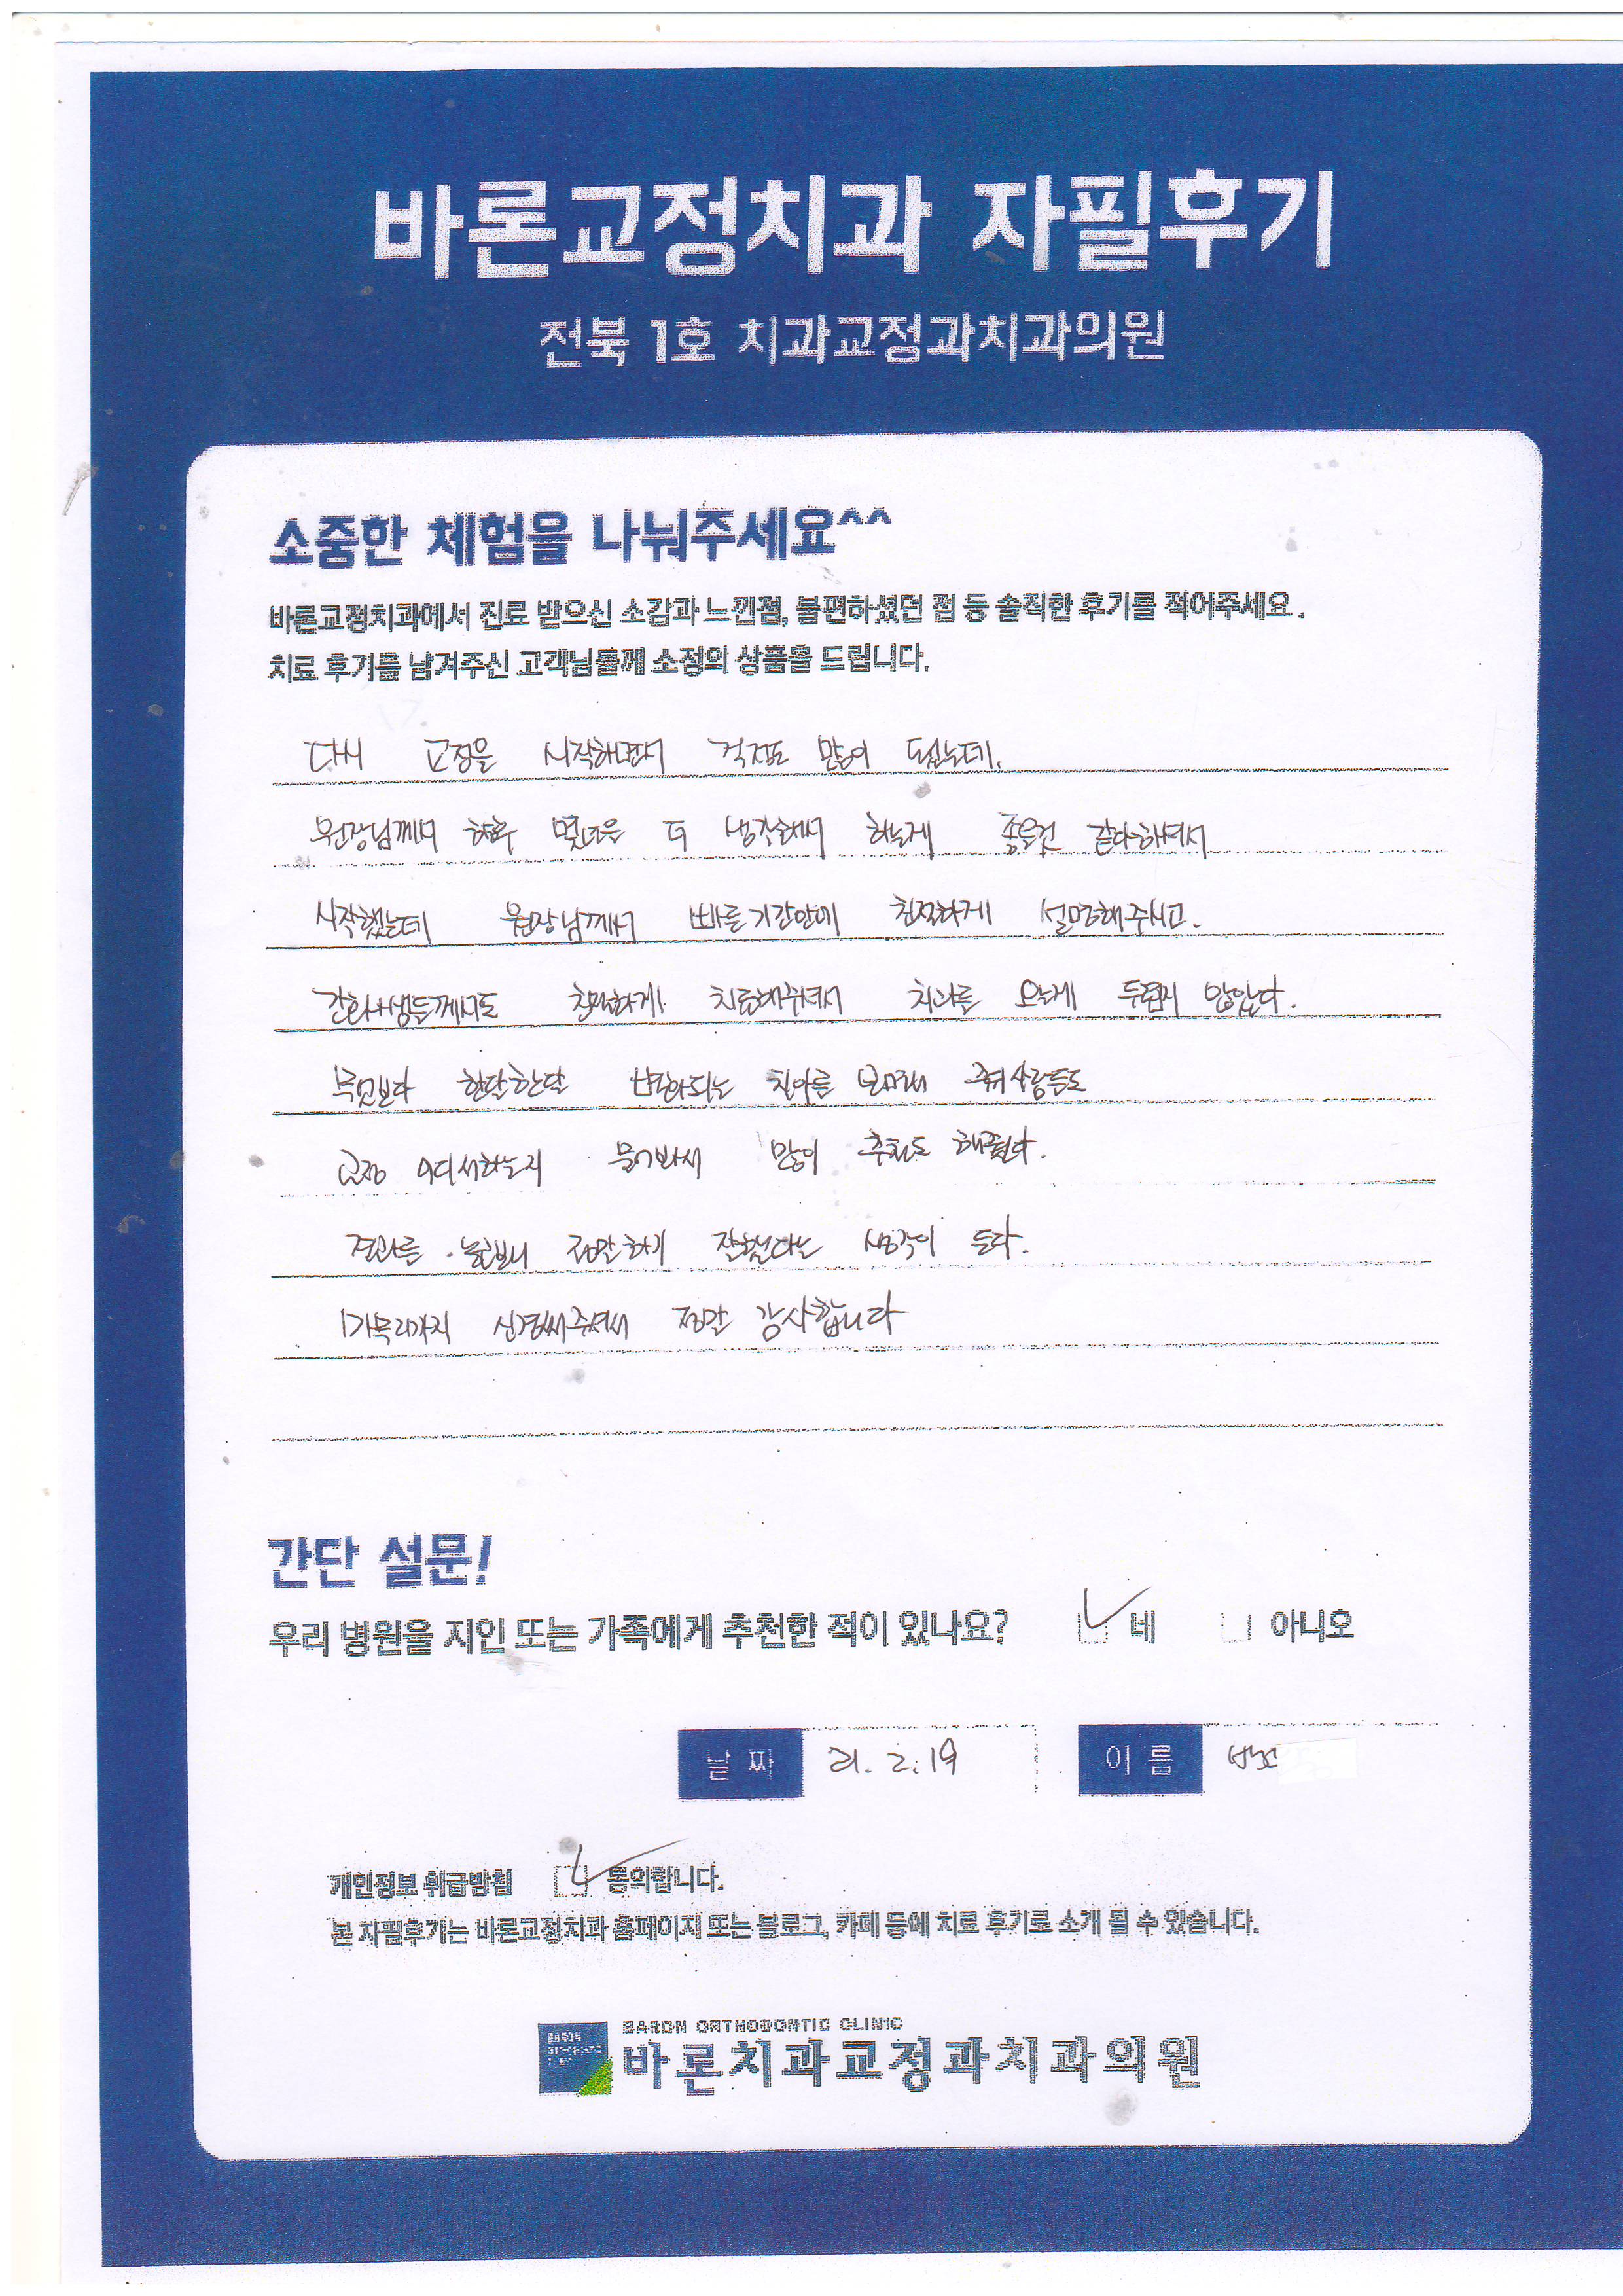 바론교정치과 자필후기
전북 1호 치과교정과치과의원
소중한 체험을 나눠주세요^^
바론교정치과에서 진료 받으신 소감과 느낀점, 불편하셨던 점 등 솔직한 후기를 적어주세요.
치료 후기를 남겨주신 고객님들께 소정의 상품을 드립니다.
다시 교정을 시작하면서 걱정도 많이 됐는데.
원장님께서 향후 몇년을 더 생각해서 하는게 좋을것 같다하셔서
시작했는데 원장님께서 빠른기간안에 친절하게 설명해주시고.
간호사쌤들께서도 친절하게 치료해주셔서 치과를 오는게 두렵지 않았다.
무엇보다 한달한달 변화되는 치아를 보며 주위사람들도
교정 어디서하는지 물어봐서 많이 추천도 해줬다.
결과를 보니 정말하기 잘했다는 생각이 든다.
마무리까지 신경써주셔서 정말 감사합니다
간단 설문!
우리 병원을 지인 또는 가족에게 추천한 적이 있나요? 네 아니오
날짜 21. 2. 19 이름
개인정보 취급방침 동의합니다.
본 자필후기는 바론교정치과 홈페이지 또는 블로그, 카페 등에 치료 후기로 소개 될 수 있습니다.
BARON ORTHODONTIC CLINIC
바론치과교정과치과의원